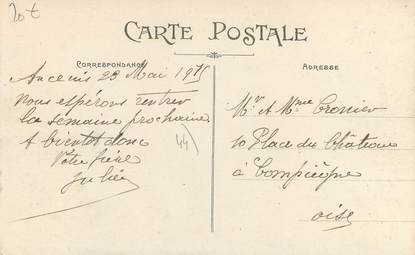 20t
CARTE POSTALE
CORRESPONDANCE
Ancenis 23 Mai 1915
Nous espérons rentrer
la semaine prochaine
A bientôt donc
Votre frère
Julien
44)
ADRESSE
Mr et Mme Crosnier
10 Place du Château
à Compiègne
Oise